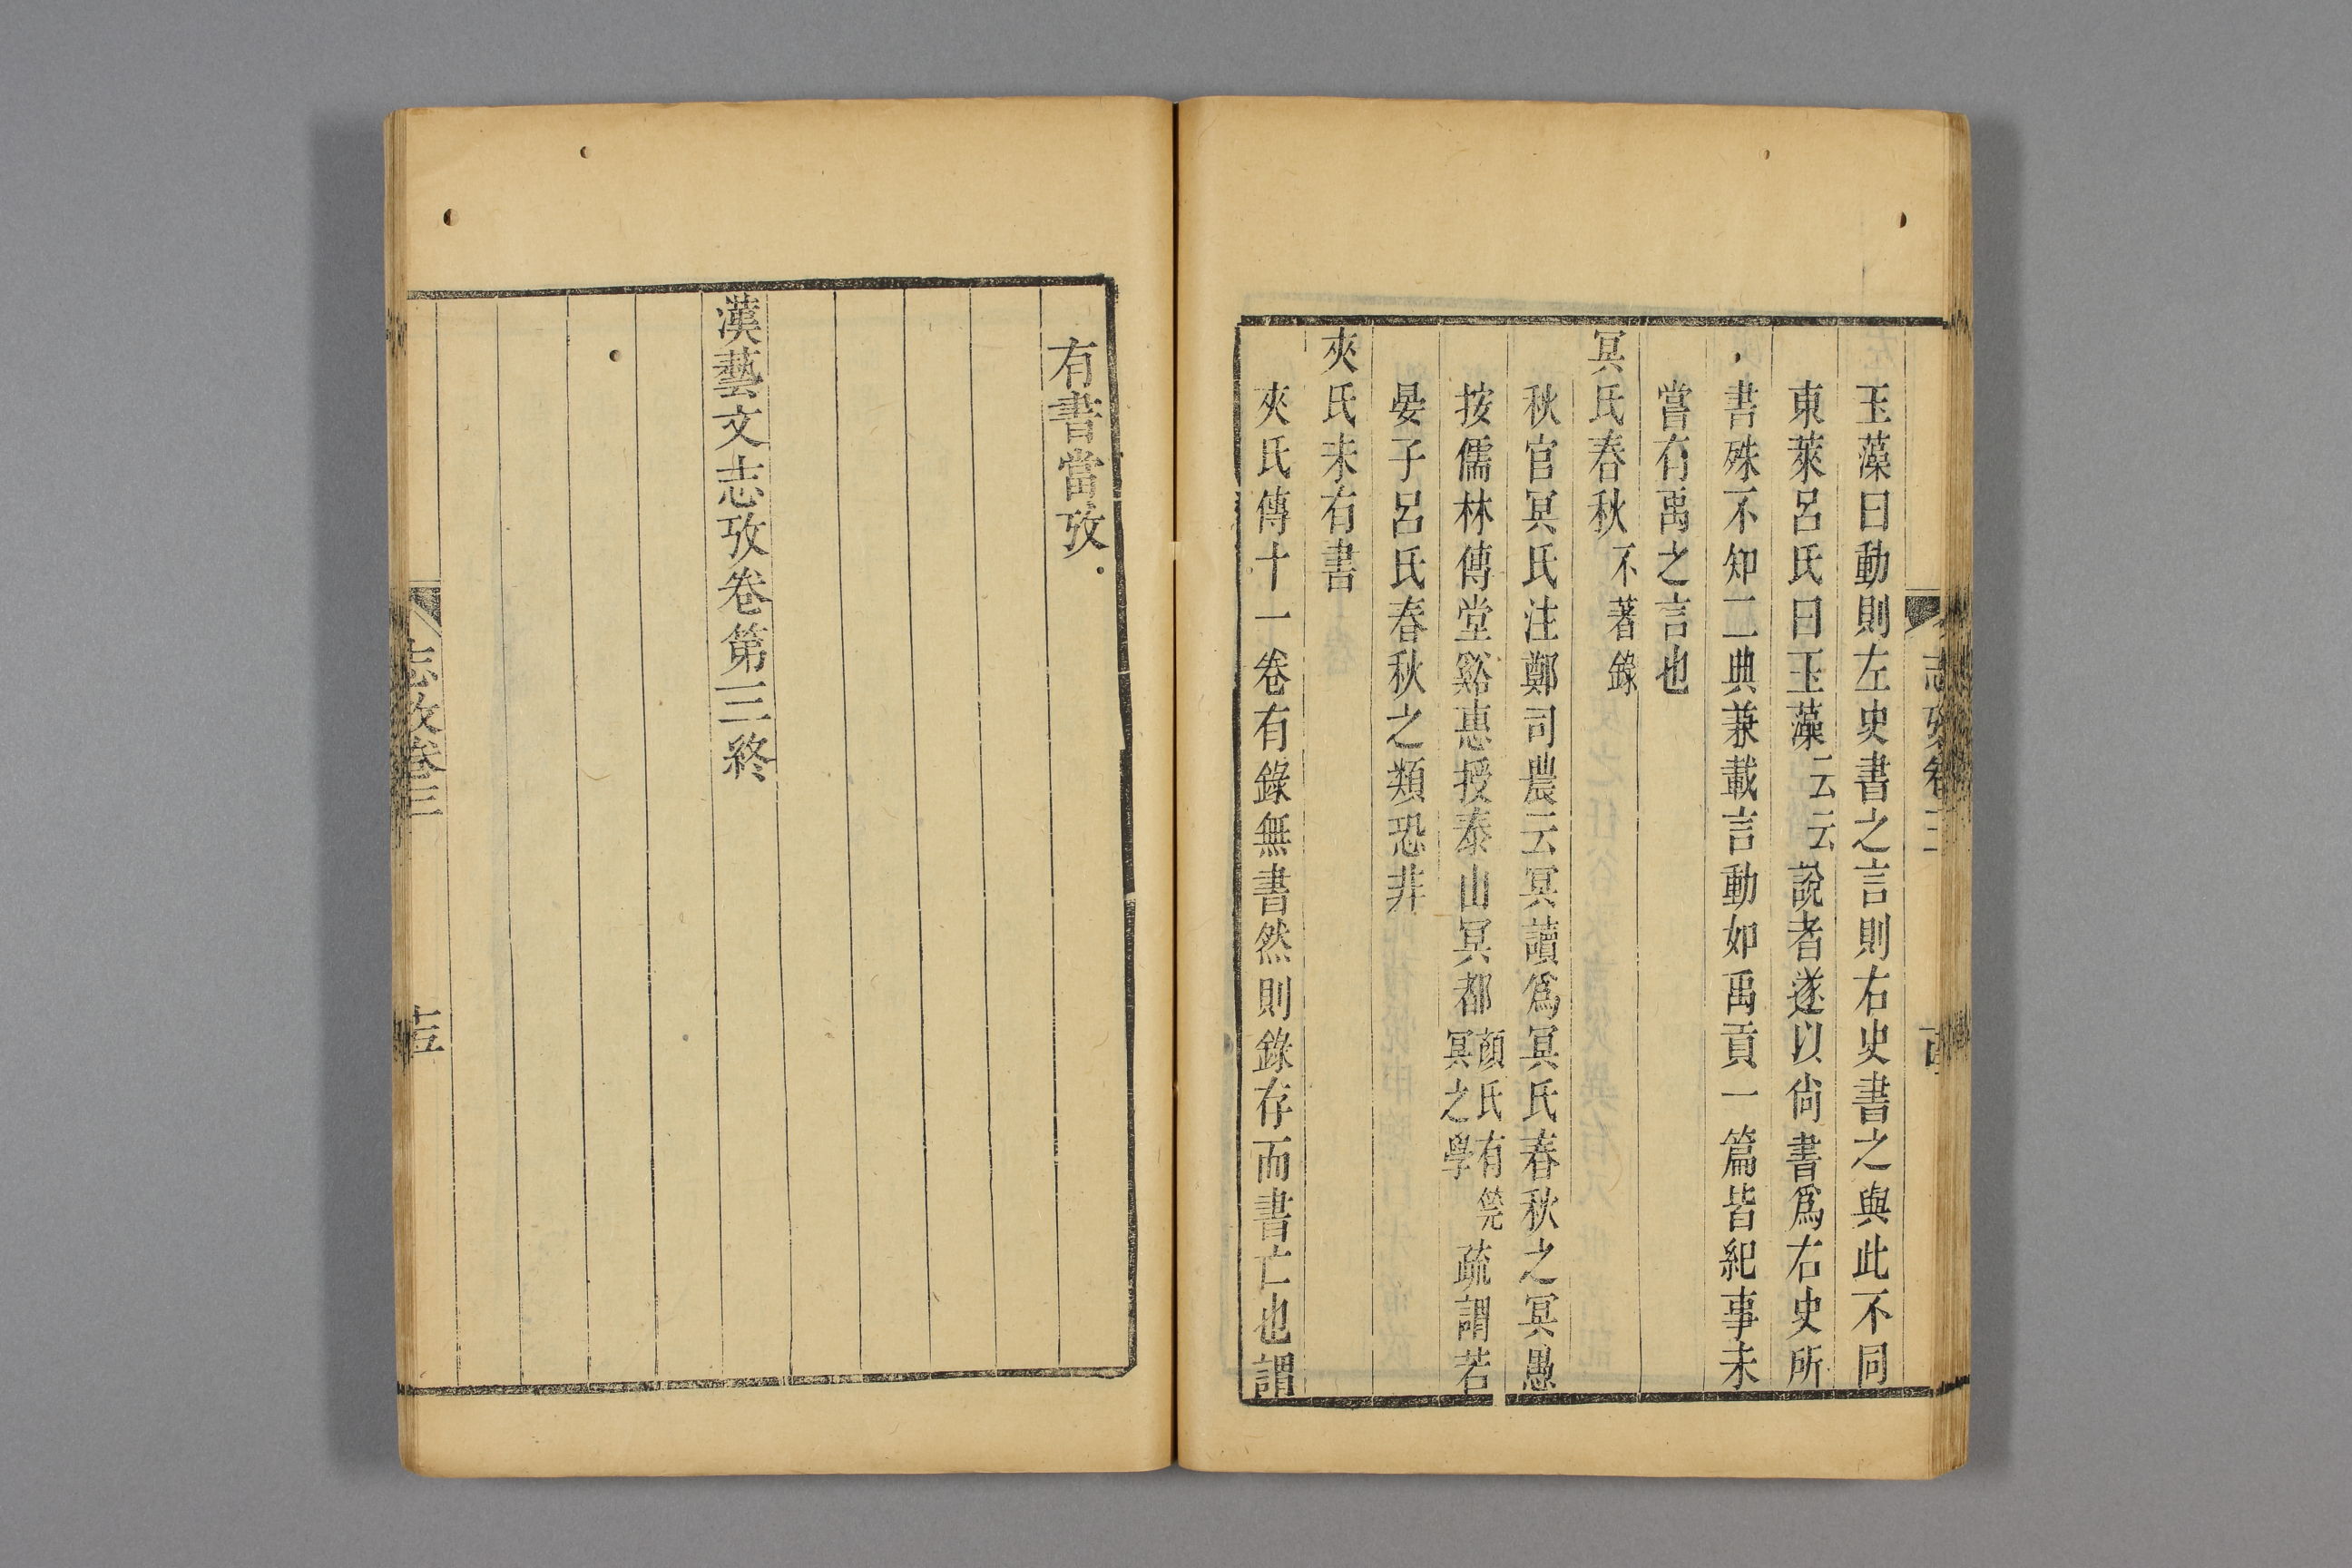 玉藻曰動則左史書之言則右史書之與此不同
東萊呂氏曰玉藻云云說者遂以尙書爲右史所
書殊不知二典兼載言動如禹貢一篇皆紀事未
嘗有禹之言也
冥氏春秋不著錄
秋官冥氏注鄭司農云冥讀爲冥氏春秋之冥愚
按儒林傳堂谿惠授泰山冥都顏氏有筦冥之學疏謂若
晏子呂氏春秋之類恐非
夾氏未有書
夾氏傳十一卷有錄無書然則錄存而書亡也謂
有書當攷
漢藝文志攷卷第三終
志攷卷三
十五